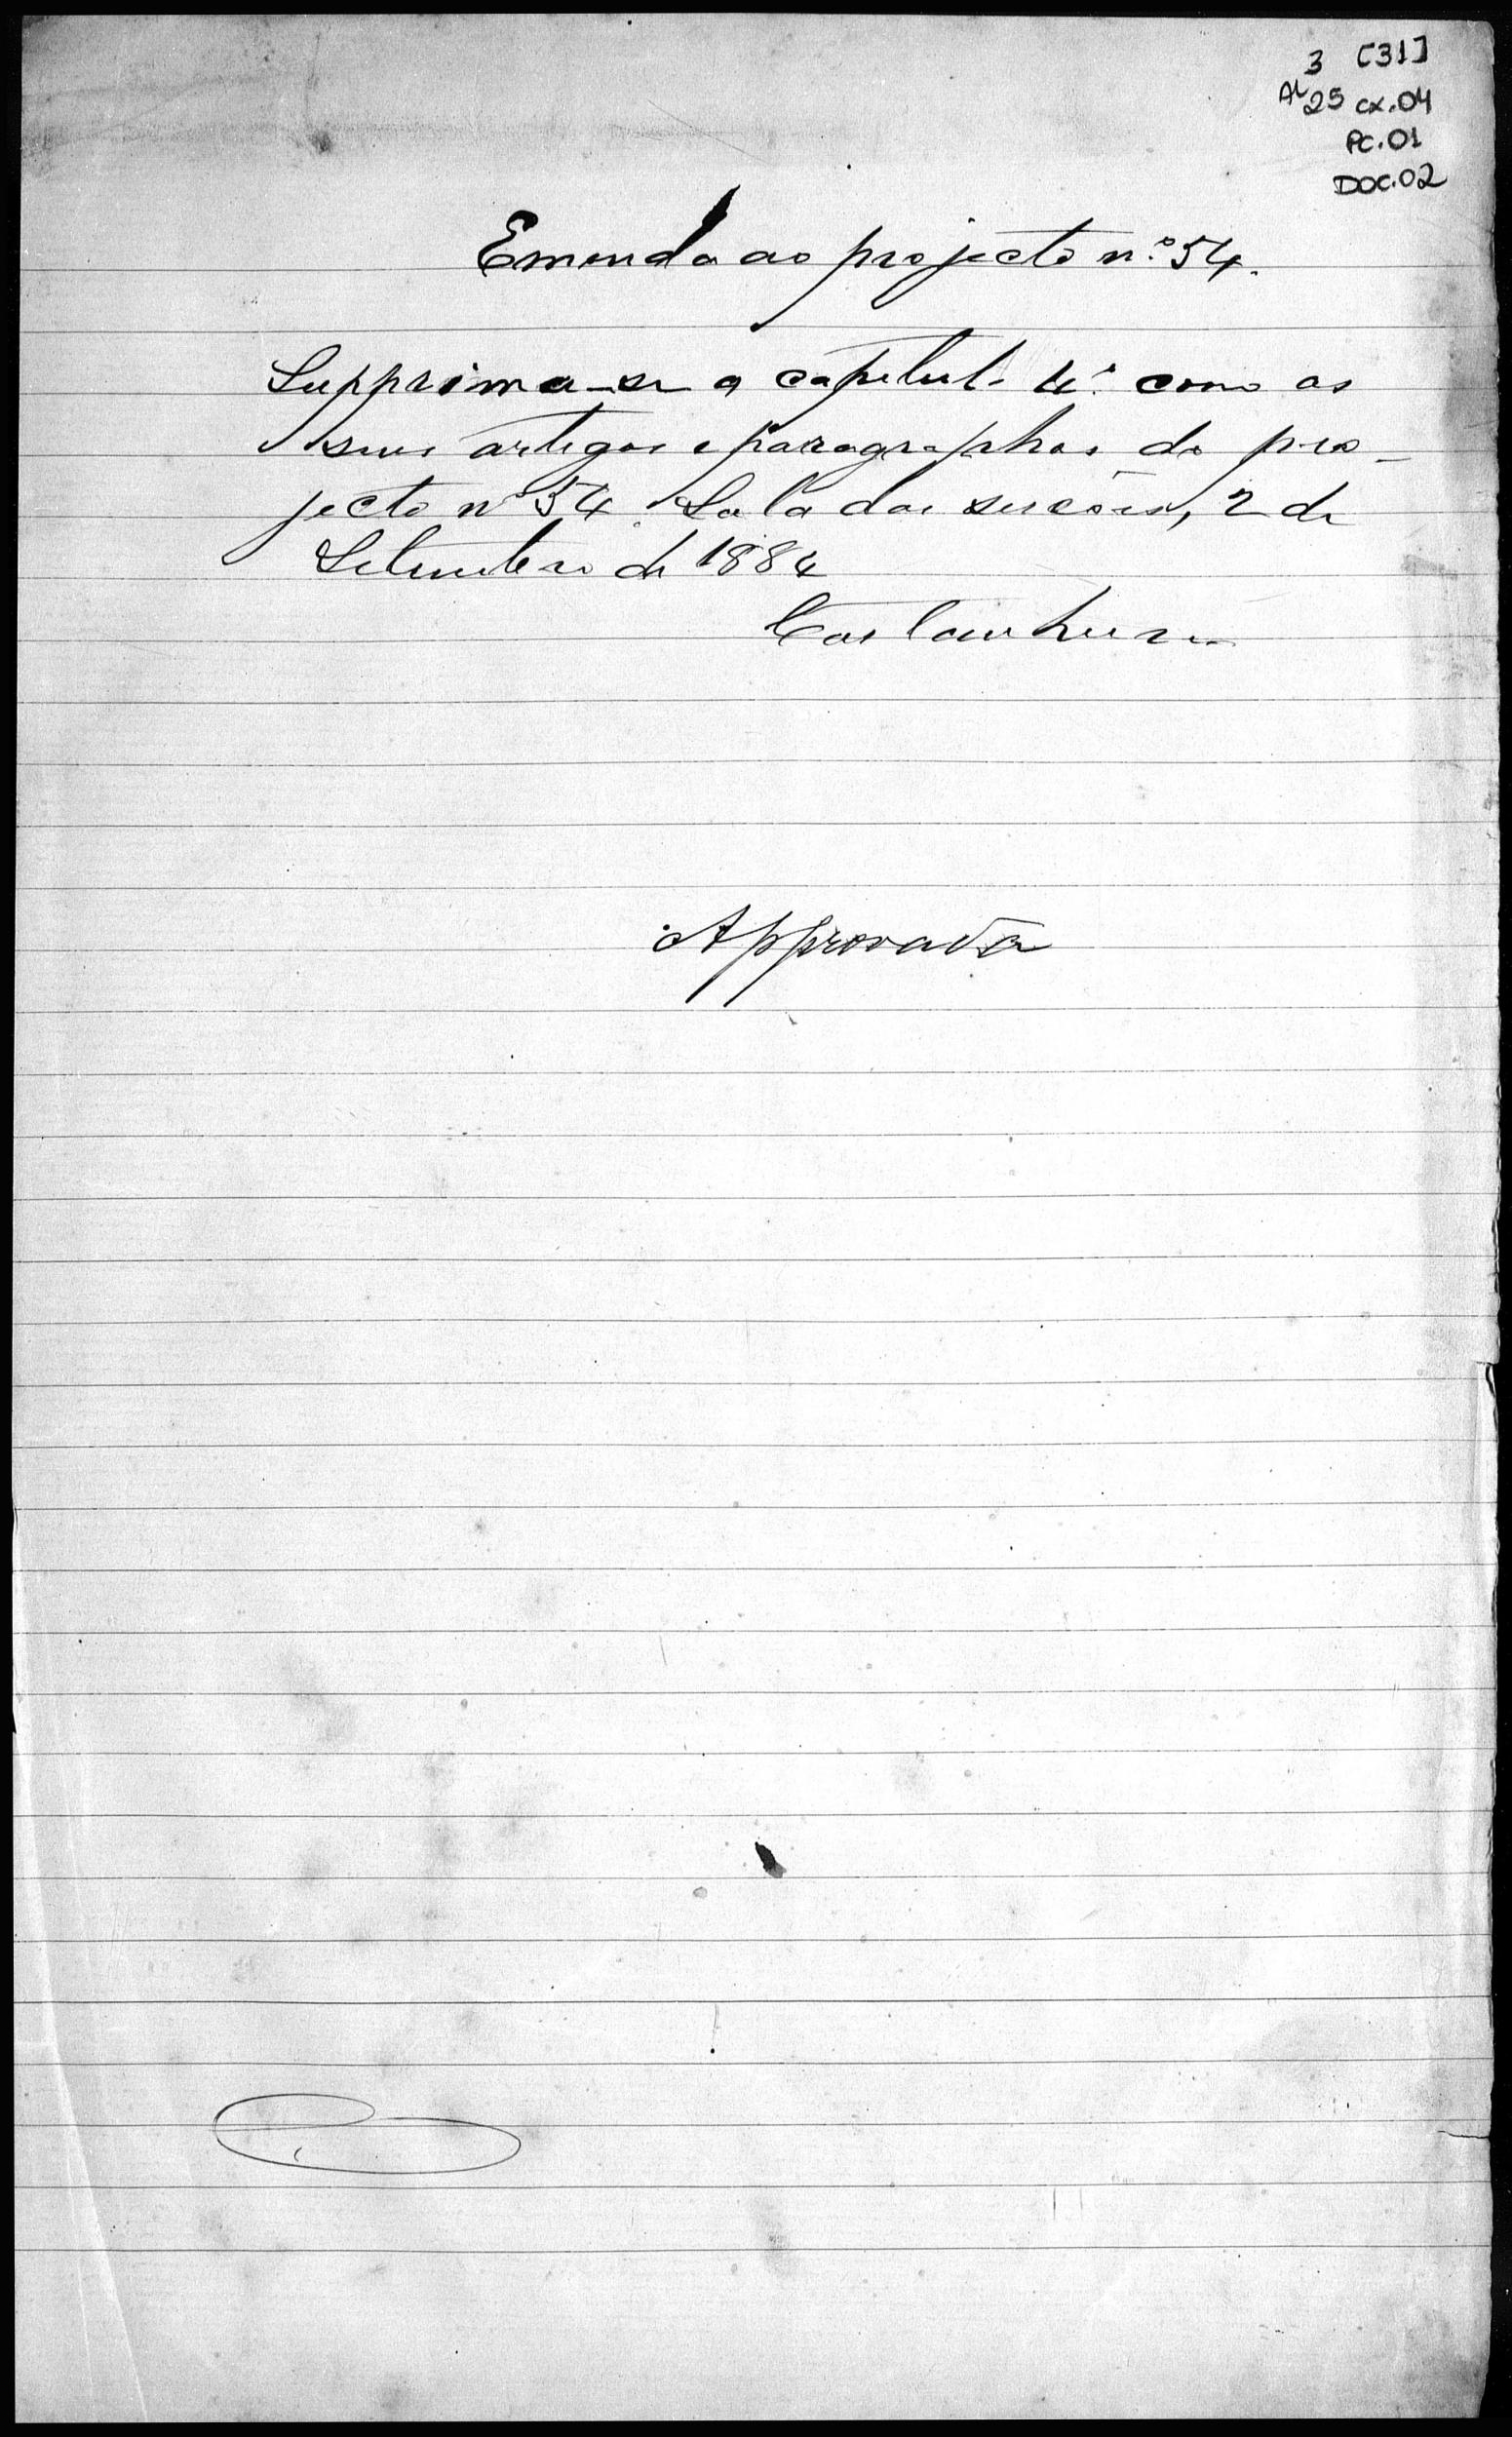 3 [31]
AL 25 cx.04
PC.01
DOC.02
Emenda ao projecto nº 54.
Supprima-se o capitulo 4º com os
seus artigos e paragraphos do pro-
jecto nº 54. Sala das sessões, 2 de
Setembro de 1884
Castanheira
Approvada